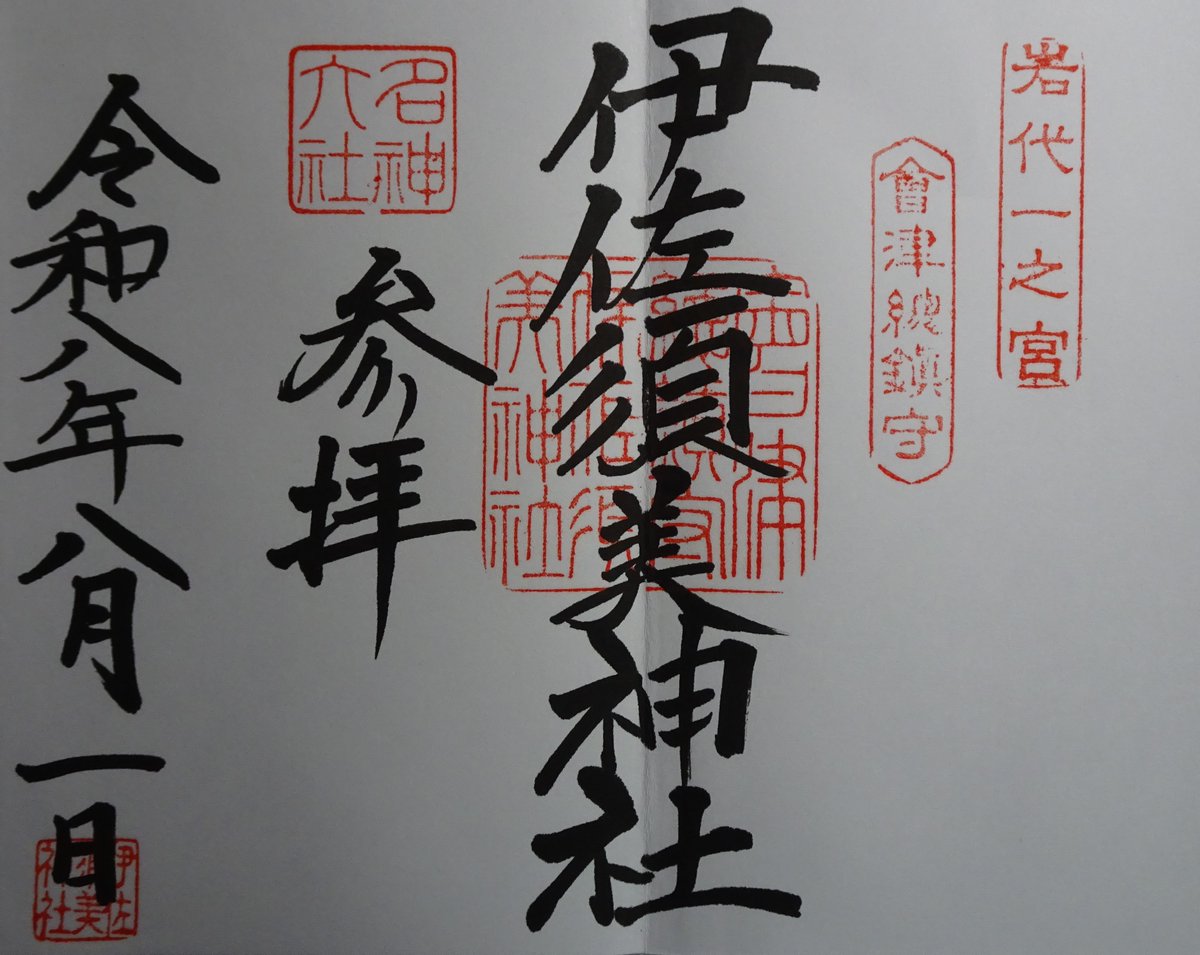 岩代一之宮
會津総鎮守
伊佐須美神社
美神社
名神
大社
参拝
令和八年八月一日
伊佐
須美
神社